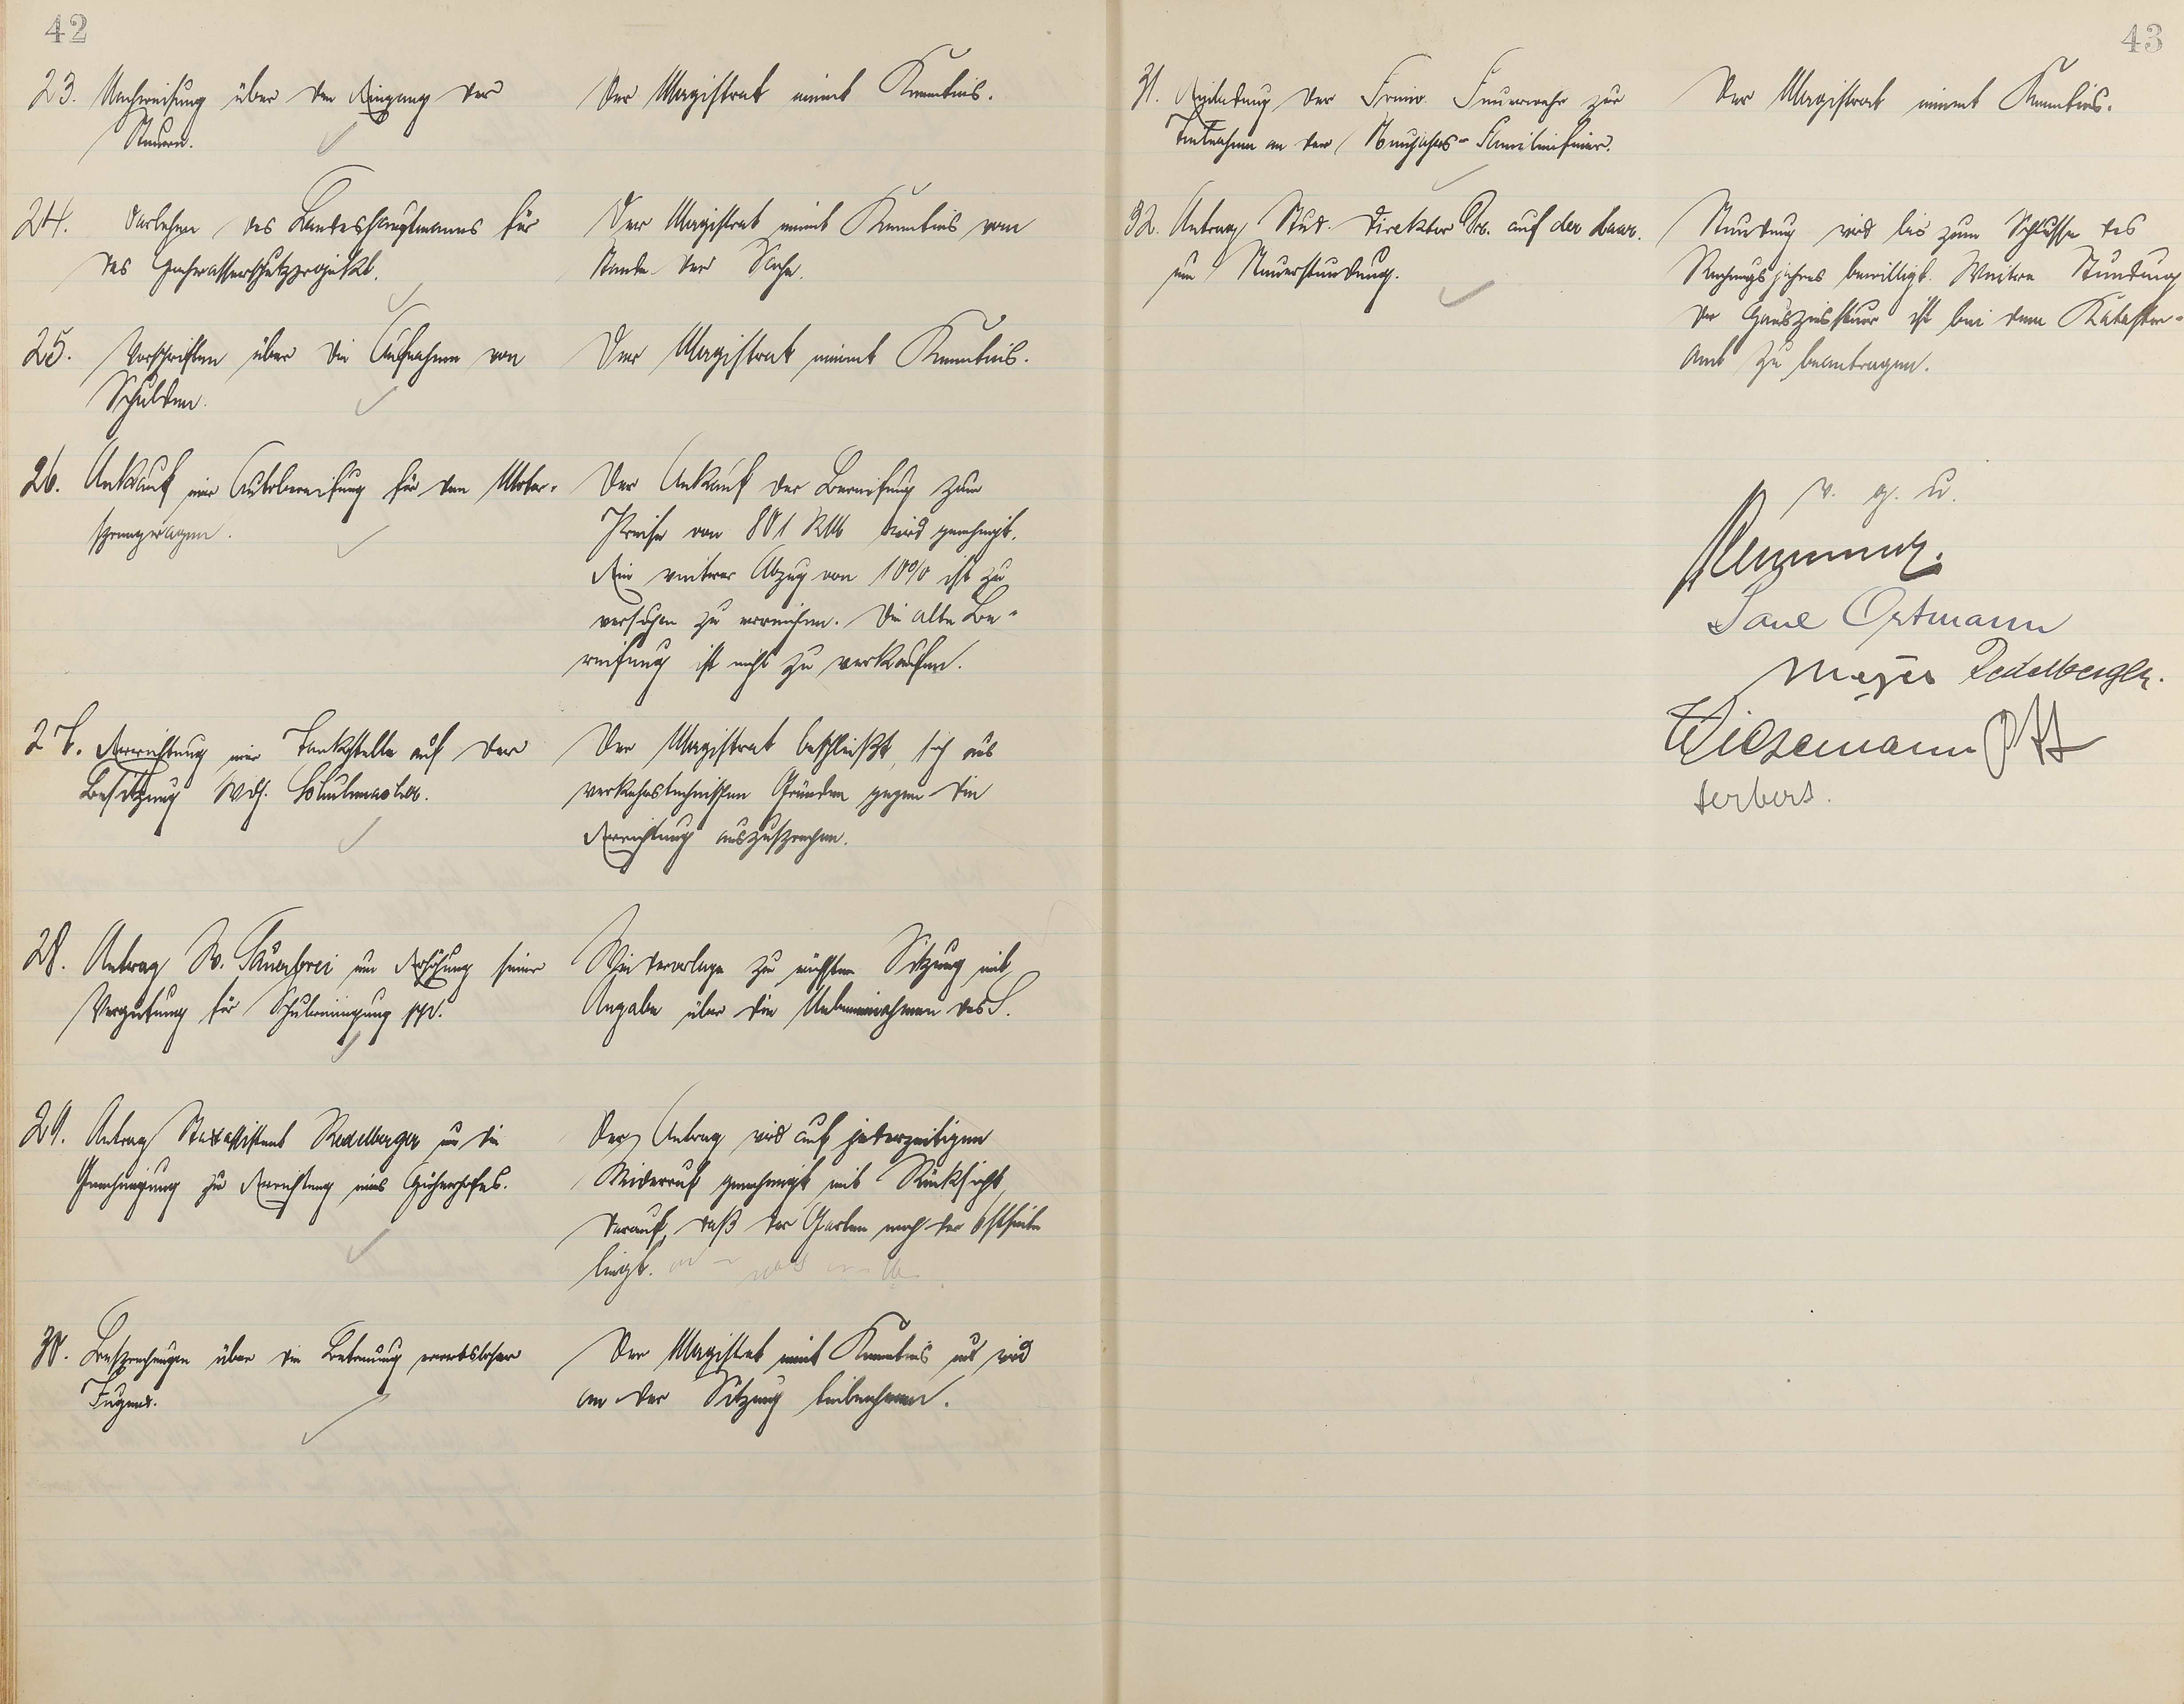 42
23. Nachweisung über den Eingang der
Steuern.
Der Magistrat nimmt Kenntnis.
24. Darlehen des Landeshauptmanns für
das Hochwasserschutzprojekt.
Der Magistrat nimmt Kenntnis vom
Stande der Sache.
25. Vorschriften über die Aufnahme von
Schulden.
Der Magistrat nimmt Kenntnis.
26. Ankauf einer Autobereifung für den Motor-
sprengwagen.
Der Ankauf der Bereifung zum
Preise von 801 RM wird genehmigt.
Ein weiterer Abzug von 10% ist zu
versuchen zu erreichen. Die alte Be-
reifung ist nicht zu verkaufen.
27. Errichtung einer Tankstelle auf der
Besitzung Wch. Schulmacher.
Der Magistrat beschließt, sich aus
verkehrstechnischen Gründen gegen die
Errichtung auszusprechen.
28. Antrag W. Sauerbrei um Erhöhung seiner
Vergütung für Schulreinigung pp.
Wiedervorlage zur nächsten Sitzung mit
Angabe über die Nebeneinnahmen des S.
29. Antrag Stadtassistent Redelberger um die
Genehmigung zur Errichtung eines Hühnerhofes.
Der Antrag wird auf jederzeitigen
Widerruf genehmigt mit Rücksicht
darauf, daß der Garten nach der Ostseite
liegt.
30. Besprechungen über die Betreuung erwerbsloser
Jugend.
Der Magistrat nimmt Kenntnis und wird
an der Sitzung teilnehmen.
43
31. Einladung der Freiw. Feuerwehr zur
Teilnahme an der Neujahrs-Familienfeier.
Der Magistrat nimmt Kenntnis.
32. Antrag Stud. Direktor Dr. auf der Laar.
um Steuerstundung.
Stundung wird bis zum Schlusse des
Rechnungsjahres bewilligt. Weitere Stundung
der Hauszinssteuer ist bei dem Kataster-
amt zu beantragen.
v. g. u.
Paul Ortmann
Meyer Redelberger.
Wiesemann
Herbers.